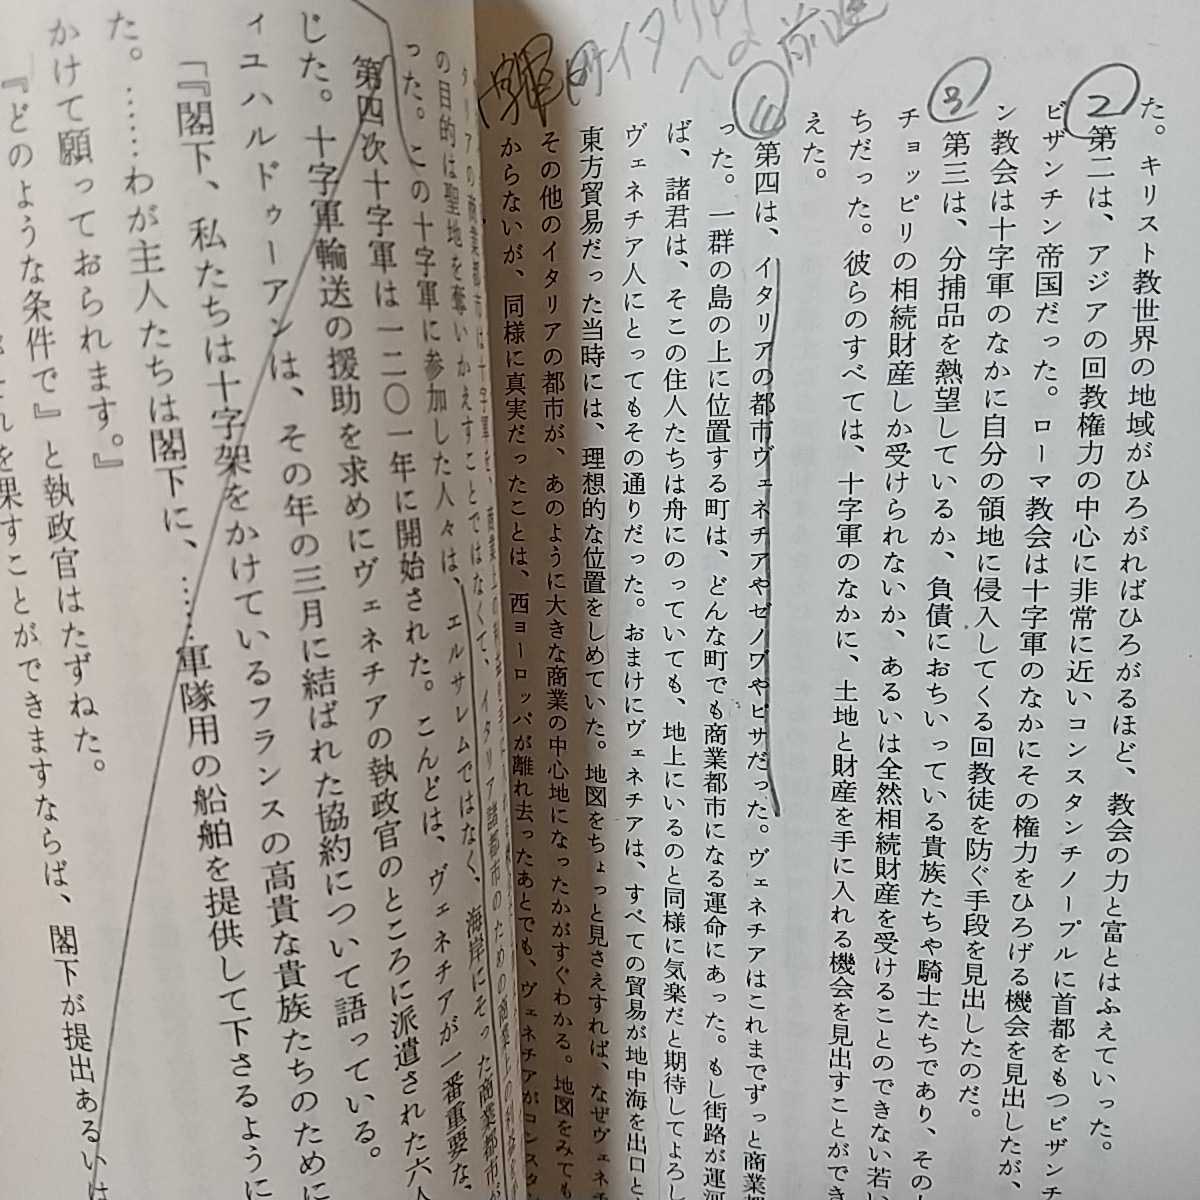 十字軍時イタリアの
への前進
た。キリスト教世界の地域がひろがればひろがるほど、教会の力と富とはふえていった。
② 第二は、アジアの回教権力の中心に非常に近いコンスタンチノープルに首都をもつビザンチ
ビザンチン帝国だった。ローマ教会は十字軍のなかにその権力をひろげる機会を見出したが、
ン教会は十字軍のなかに自分の領地に侵入してくる回教徒を防ぐ手段を見出したのだ。
③ 第三は、分捕品を熱望しているか、負債におちいっている貴族たちや騎士たちであり、その
チョッピリの相続財産しか受けられないか、あるいは全然相続財産を受けることのできない若い
ちだった。彼らのすべては、十字軍のなかに、土地と財産を手に入れる機会を見出すことができ
えた。
④ 第四は、イタリアの都市ヴェネチアやゼノワやピサだった。ヴェネチアはこれまでずっと商業
った。一群の島の上に位置する町は、どんな町でも商業都市になる運命にあった。もし街路が運河
ば、諸君は、そこの住人たちは舟にのっていても、地上にいるのと同様に気楽だと期待してよろし
ヴェネチア人にとってもその通りだった。おまけにヴェネチアは、すべての貿易が地中海を出口と
東方貿易だった当時には、理想的な位置をしめていた。地図をちょっと見さえすれば、なぜヴェネチ
その他のイタリアの都市が、あのように大きな商業の中心地になったかがすぐわかる。地図をみても
からないが、同様に真実だったことは、西ヨーロッパが離れ去ったあとでも、ヴェネチアがコンスタン
タリアの商業都市は十字軍を、商業上の
の目的は聖地を奪いかえすことではなくて、イタリア諸都市のための商業上の
った。この十字軍に参加した人々は、エルサレムではなく、海岸にそった商業都市が
第四次十字軍は一二〇一年に開始された。こんどは、ヴェネチアが一番重要な
じた。十字軍輸送の援助を求めにヴェネチアの執政官のところに派遣された六人
ィユハルドゥーアンは、その年の三月に結ばれた協約について語っている。
「『閣下、私たちは十字架をかけているフランスの高貴な貴族たちのために
た。……わが主人たちは閣下に、……軍隊用の船舶を提供して下さるように
かけて願っておられます。』
『どのような条件で』と執政官はたずねた。
れを果すことができますならば、閣下が提出あるいは